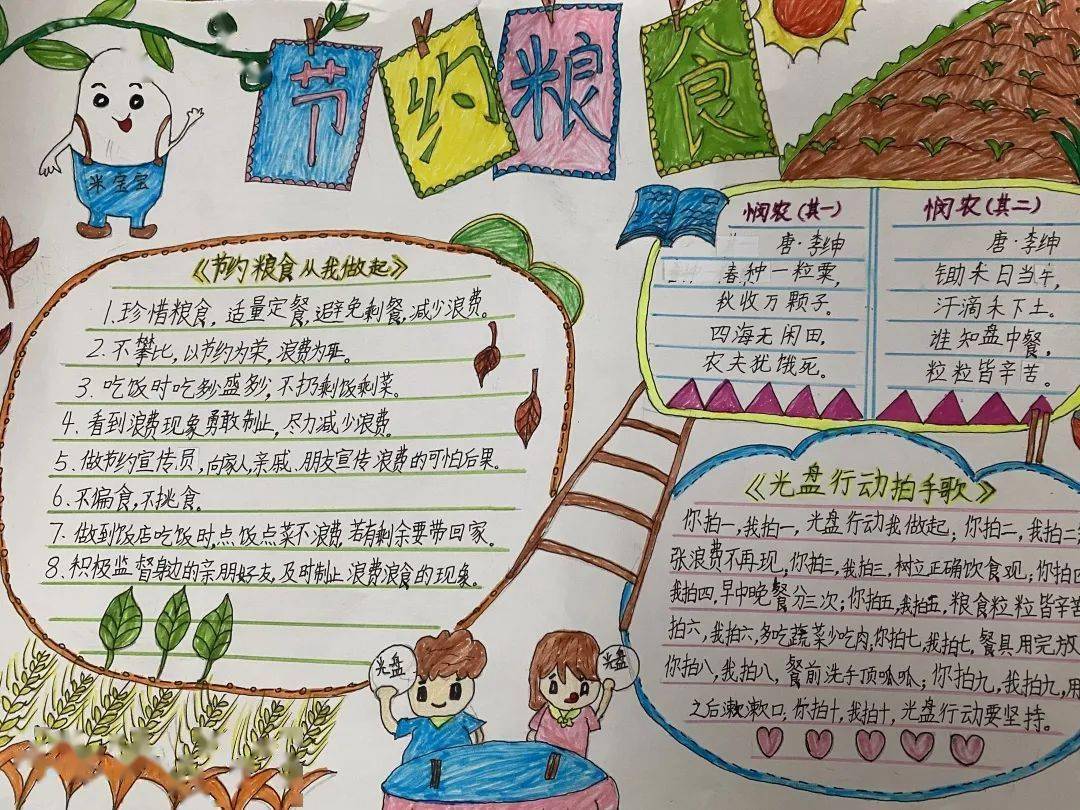 节约粮食
米宝宝
《节约粮食从我做起》
1.珍惜粮食,适量定餐,避免剩餐,减少浪费。
2.不攀比,以节约为荣,浪费为耻。
3.吃饭时吃多少盛多少,不扔剩饭剩菜。
4.看到浪费现象勇敢制止,尽力减少浪费。
5.做节约宣传员,向家人亲戚、朋友宣传浪费的可怕后果。
6.不偏食,不挑食。
7.做到饭店吃饭时,点饭点菜不浪费,若有剩余要带回家。
8.积极监督身边的亲朋好友,及时制止浪费浪食的现象。
光盘
光盘
悯农(其一)
唐·李绅
春种一粒粟,
秋收万颗子。
四海无闲田,
农夫犹饿死。
悯农(其二)
唐·李绅
锄禾日当午,
汗滴禾下土。
谁知盘中餐,
粒粒皆辛苦。
《光盘行动拍手歌》
你拍一,我拍一,光盘行动我做起;你拍二,我拍二
张浪费不再现;你拍三,我拍三,树立正确饮食观;你拍四
我拍四,早中晚餐分三次;你拍五,我拍五,粮食粒粒皆辛苦
拍六,我拍六,多吃蔬菜少吃肉,你拍七,我拍七,餐具用完放
你拍八,我拍八,餐前洗手顶呱呱;你拍九,我拍九,用
之后漱漱口;你拍十,我拍十,光盘行动要坚持。